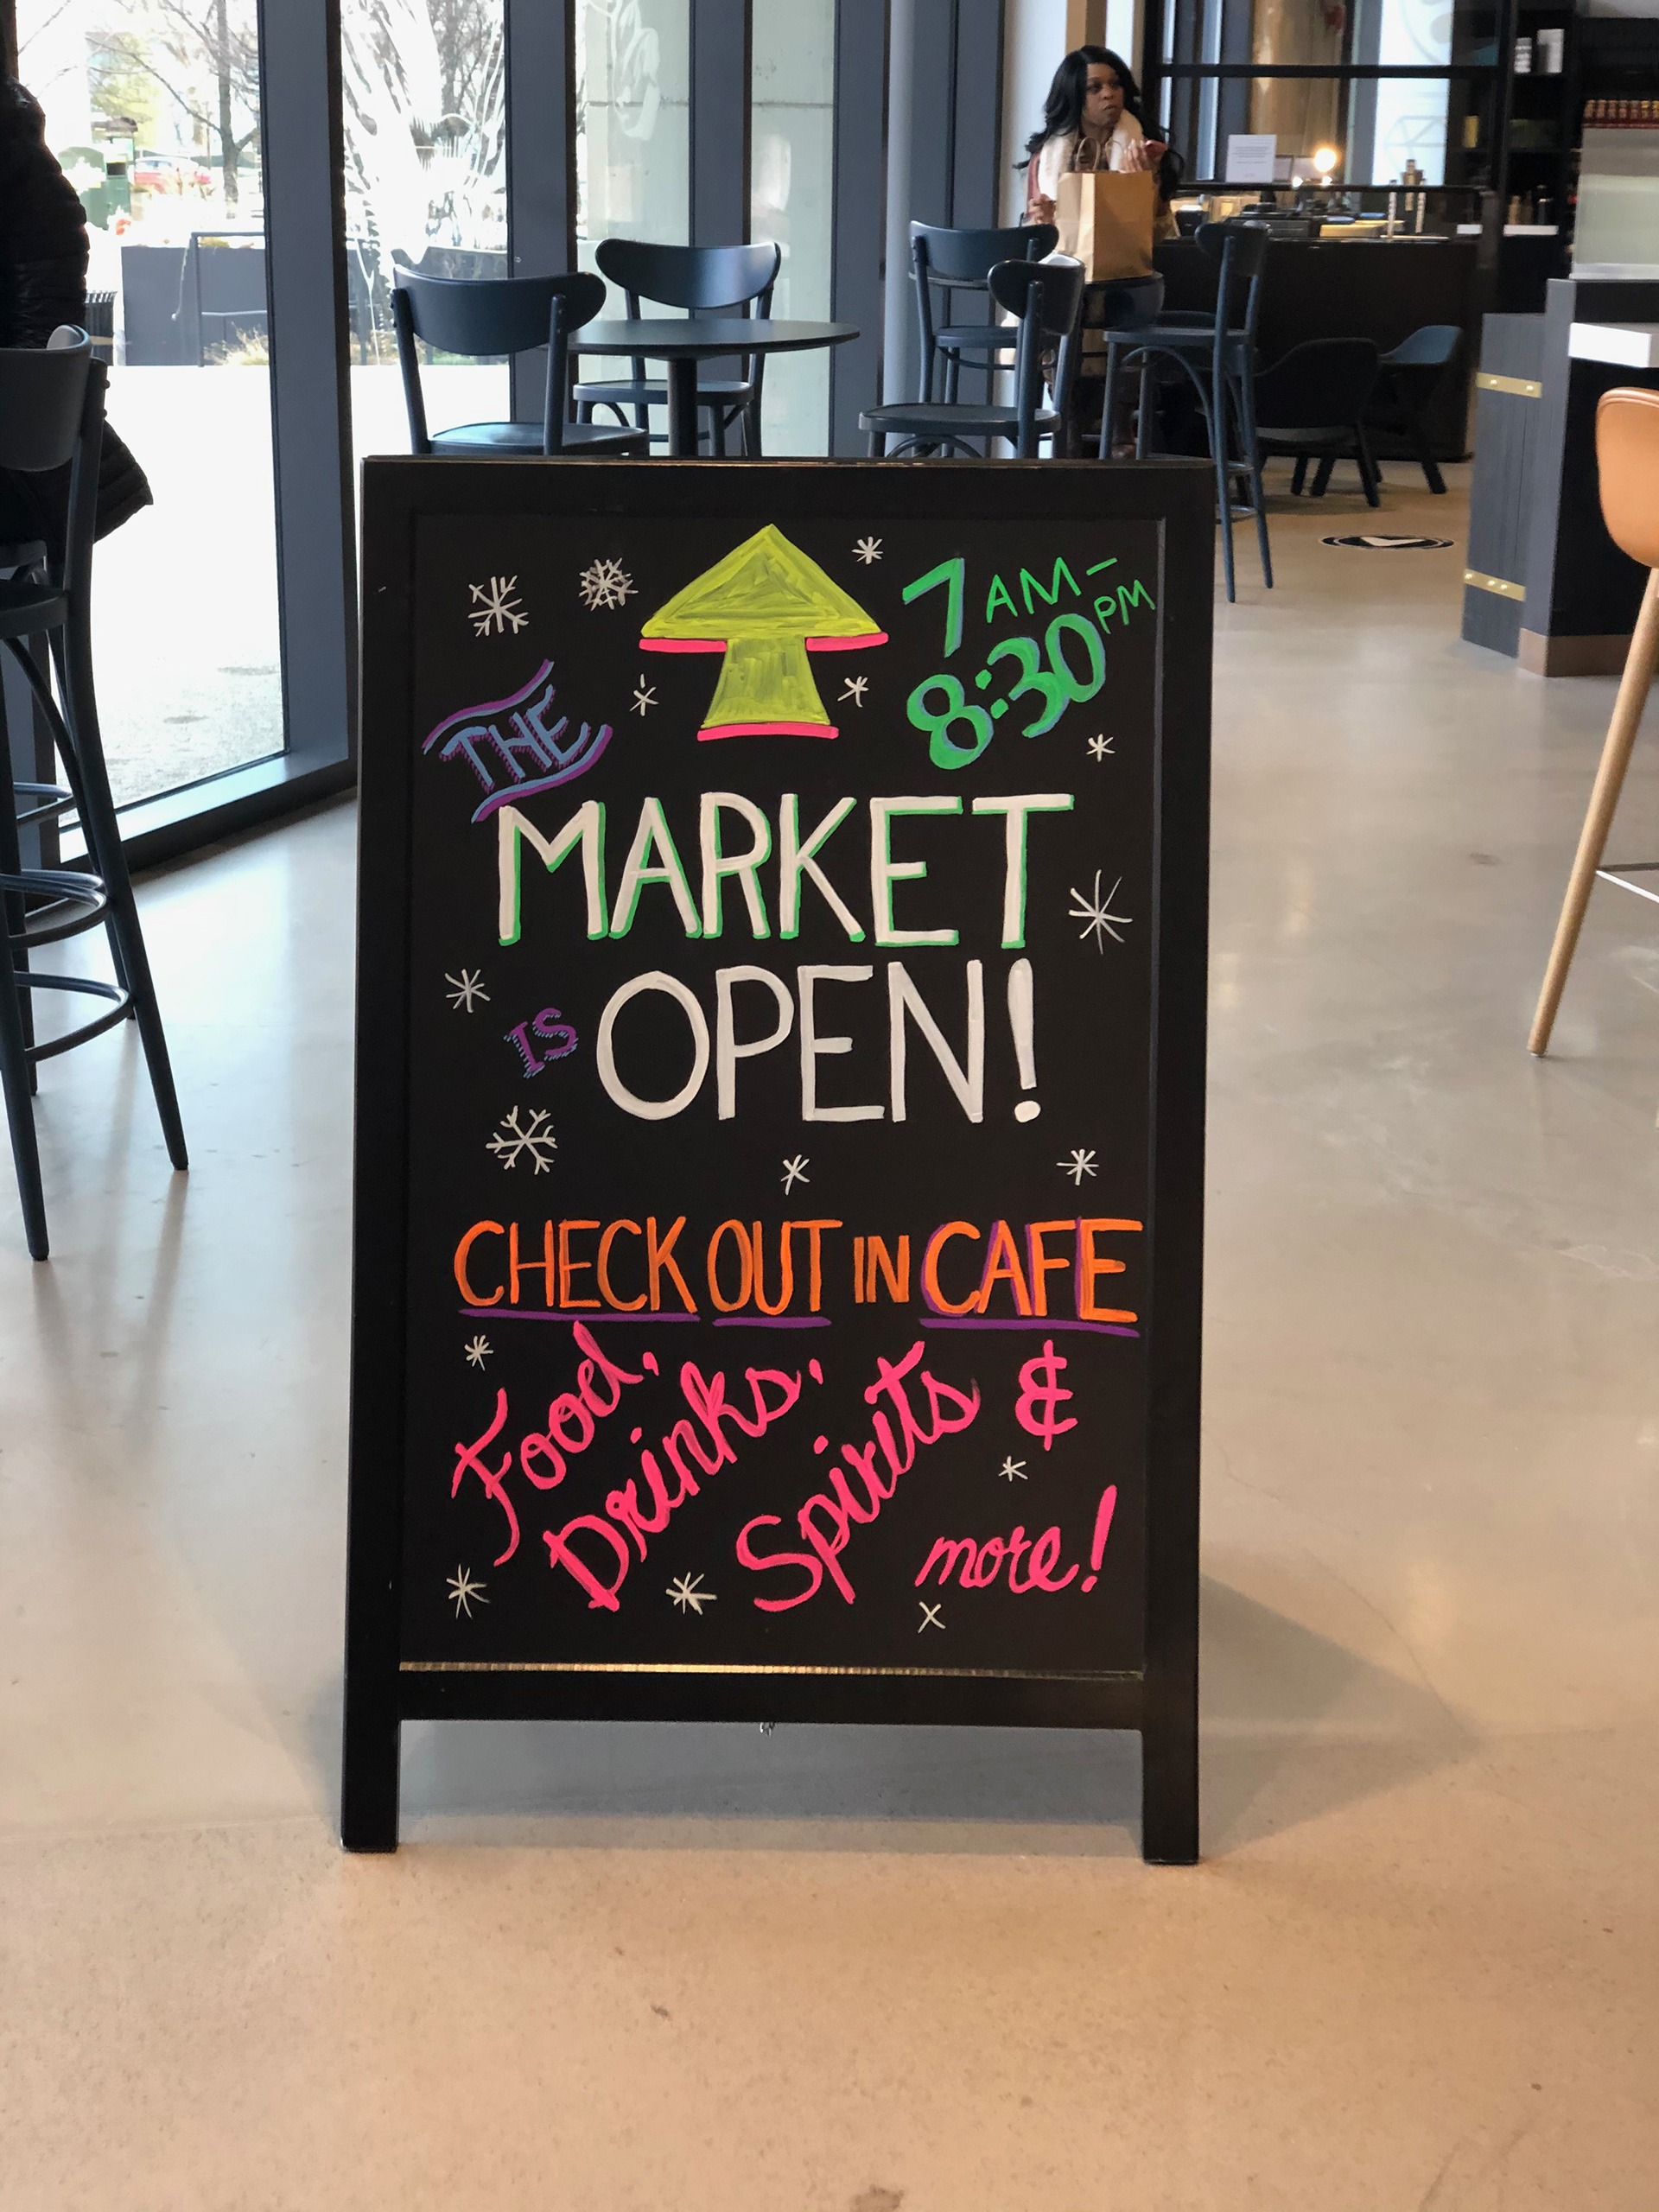 7 AM-
8:30 PM
THE
MARKET
IS OPEN!
CHECK OUT IN CAFE
Food,
Drinks,
Spirits &
more!